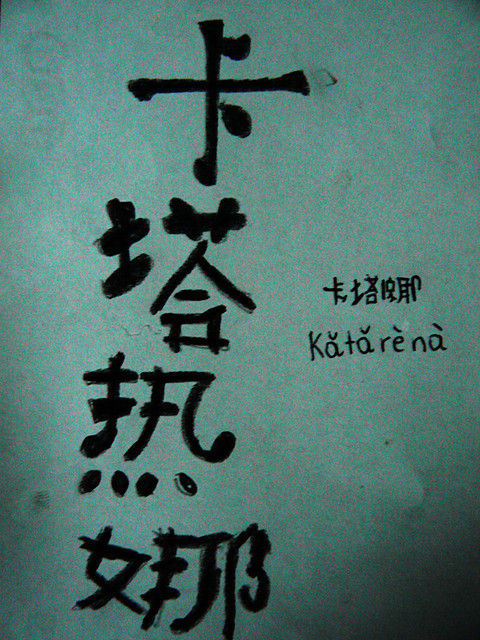 卡塔热娜
卡塔娜
Kǎtǎrènà